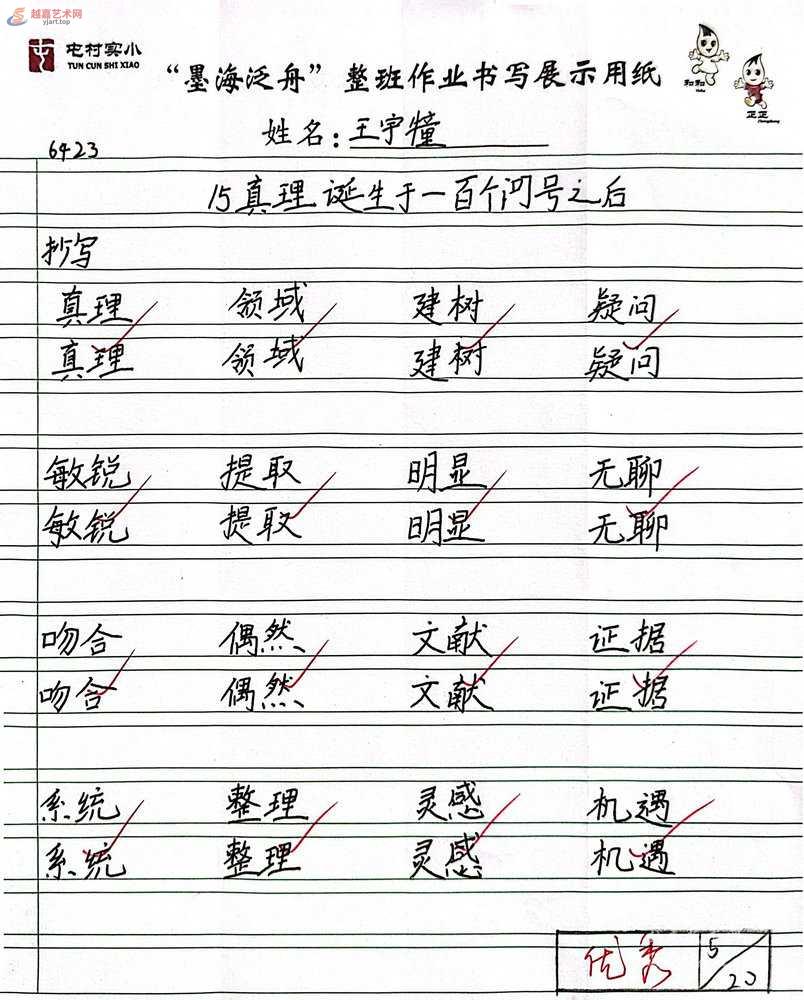 越嘉艺术网
yjart.top
屯村实小
TUN CUN SHI XIAO
“墨海泛舟”整班作业书写展示用纸
和和
正正
姓名：王宇
6423
15真理诞生于一百个问号之后
抄写
真理 领域 建树 疑问
真理 领域 建树 疑问
敏锐 提取 明显 无聊
敏锐 提取 明显 无聊
吻合 偶然 文献 证据
吻合 偶然 文献 证据
系统 整理 灵感 机遇
系统 整理 灵感 机遇
优秀 5/20